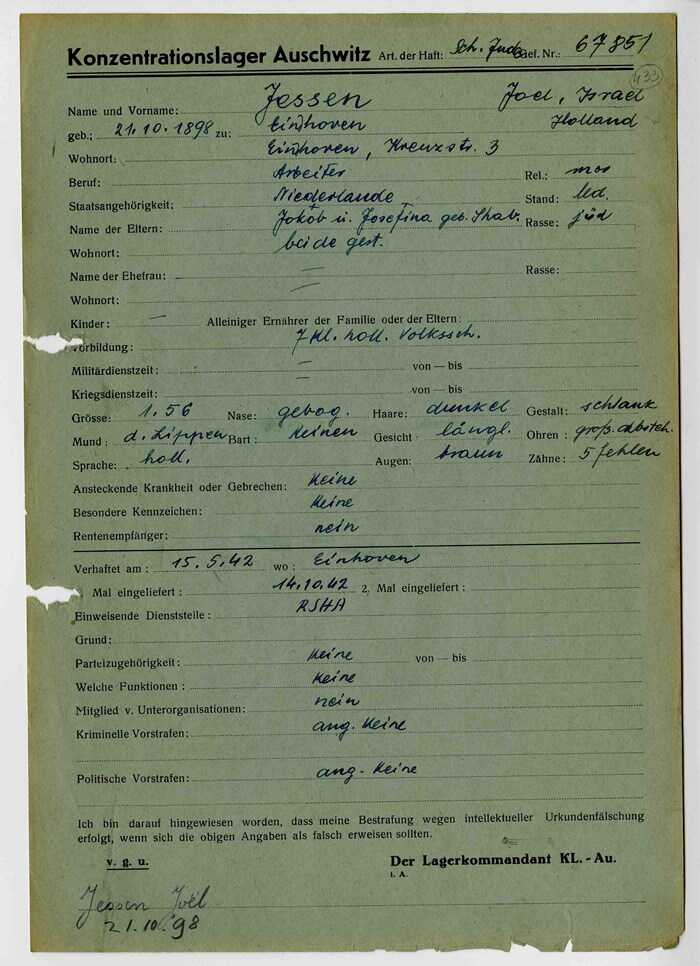 Konzentrationslager Auschwitz Art. der Haft: Sch. Jude Gef. Nr.: 67851
433
Name und Vorname: Jessen Joel, Israel
geb.: 21.10.1898 zu: Einhoven Holland
Wohnort: Einhoven, Kreuzstr. 3
Beruf: Arbeiter Rel.: mos
Staatsangehörigkeit: Niederlande Stand: led.
Name der Eltern: Jakob u. Josefina geb. Rasse: jüd
Wohnort: beide gest.
Name der Ehefrau: — Rasse:
Wohnort: —
Kinder: — Alleiniger Ernährer der Familie oder der Eltern:
Vorbildung: 7 Kl. holl. Volkssch.
Militärdienstzeit: — von — bis
Kriegsdienstzeit: — von — bis
Grösse: 1.56 Nase: gebog. Haare: dunkel Gestalt: schlank
Mund: d. Lippen Bart: keinen Gesicht längl. Ohren: groß. absteh.
Sprache: holl. Augen: braun Zähne: 5 fehlen
Ansteckende Krankheit oder Gebrechen: keine
Besondere Kennzeichen: keine
Rentenempfänger: nein
Verhaftet am: 15.5.42 wo: Einhoven
Mal eingeliefert: 14.10.42 2. Mal eingeliefert:
Einweisende Dienststelle: RSHA
Grund:
Parteizugehörigkeit: keine von — bis
Welche Funktionen: keine
Mitglied v. Unterorganisationen: nein
Kriminelle Vorstrafen: ang. keine
Politische Vorstrafen: ang. keine
Ich bin darauf hingewiesen worden, dass meine Bestrafung wegen intellektueller Urkundenfälschung
erfolgt, wenn sich die obigen Angaben als falsch erweisen sollten.
v. g. u. Der Lagerkommandant KL.-Au.
i. A.
Jessen Joël
21.10.98